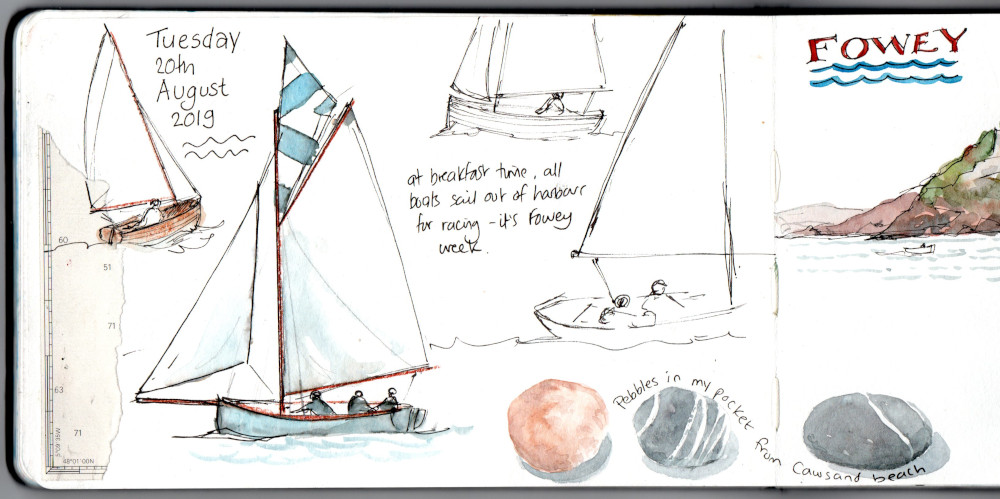 Tuesday
20th
August
2019
FOWEY
at breakfast time, all
boats sail out of harbour
for racing - it's Fowey
week.
Pebbles in my pocket from Cawsand beach
60
51
71
63
71
5°0X'35W
48°01'00N